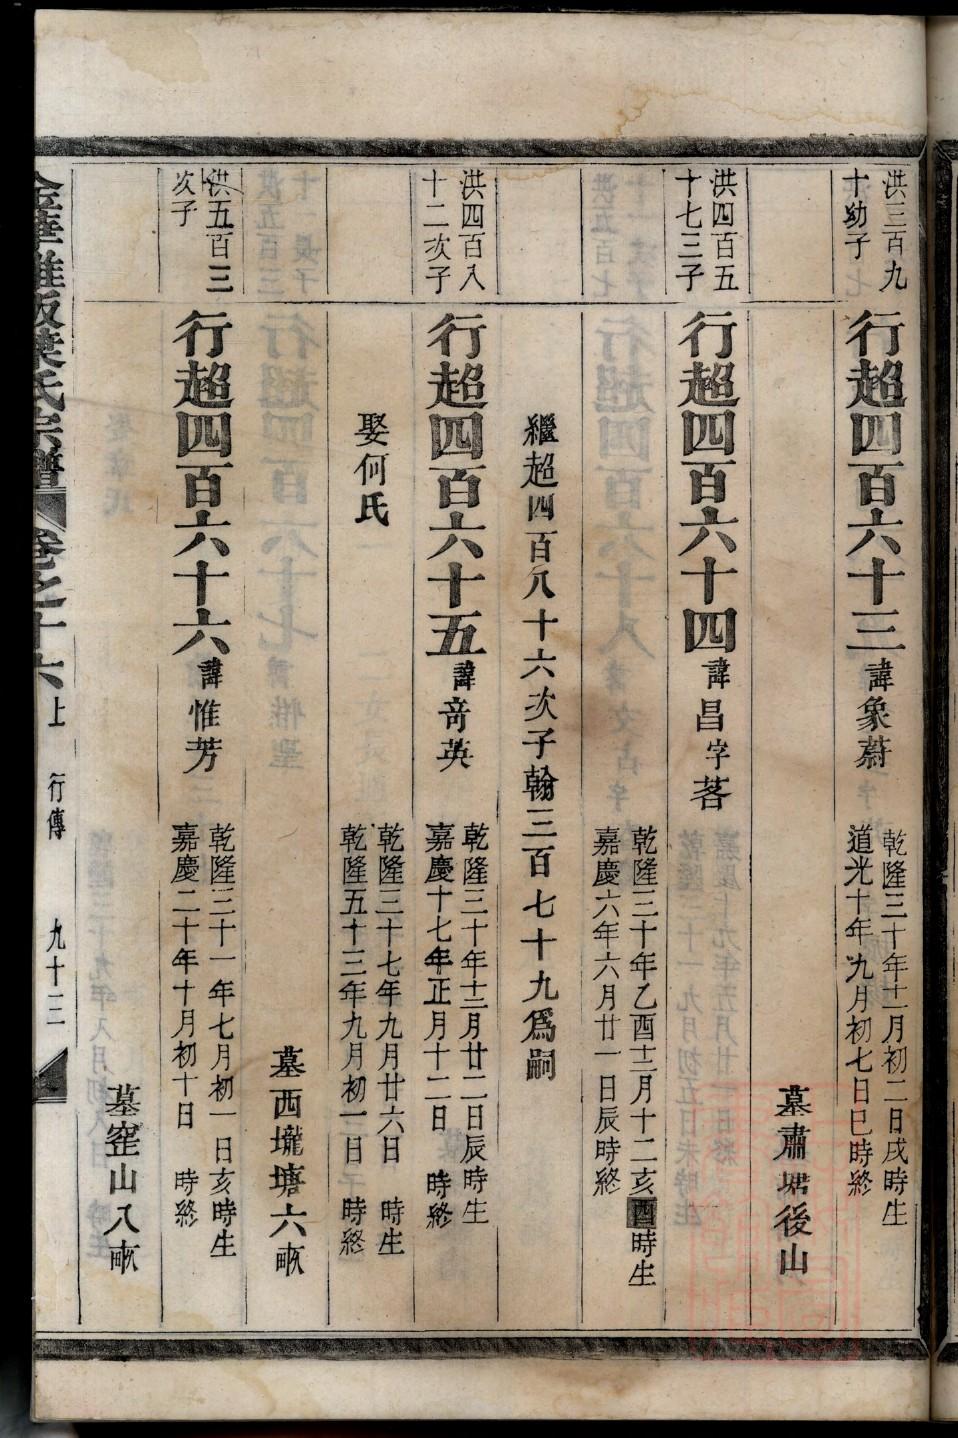 洪三百九
十幼子
行超四百六十三
諱象蔚
乾隆三十年十一月初二日戌時生
道光十年九月初七日巳時終
墓肅塘後山
洪四百五
十七三子
行超四百六十四
諱昌字茖
乾隆三十年乙酉十二月十二亥酉時生
嘉慶六年六月廿一日辰時終
繼超四百八十六次子翰三百七十九為嗣
洪四百八
十二次子
行超四百六十五
諱奇英
乾隆三十年十二月廿二日辰時生
嘉慶十七年正月十二日 時終
娶何氏
乾隆三十七年九月廿六日 時生
乾隆五十三年九月初二日 時終
墓西壠塘六畝
洪五百三
次子
行超四百六十六
諱惟芳
乾隆三十一年七月初一日亥時生
嘉慶二十年十月初十日 時終
墓窐山八畝
葉氏宗譜
卷之十六上
行傳
九十三